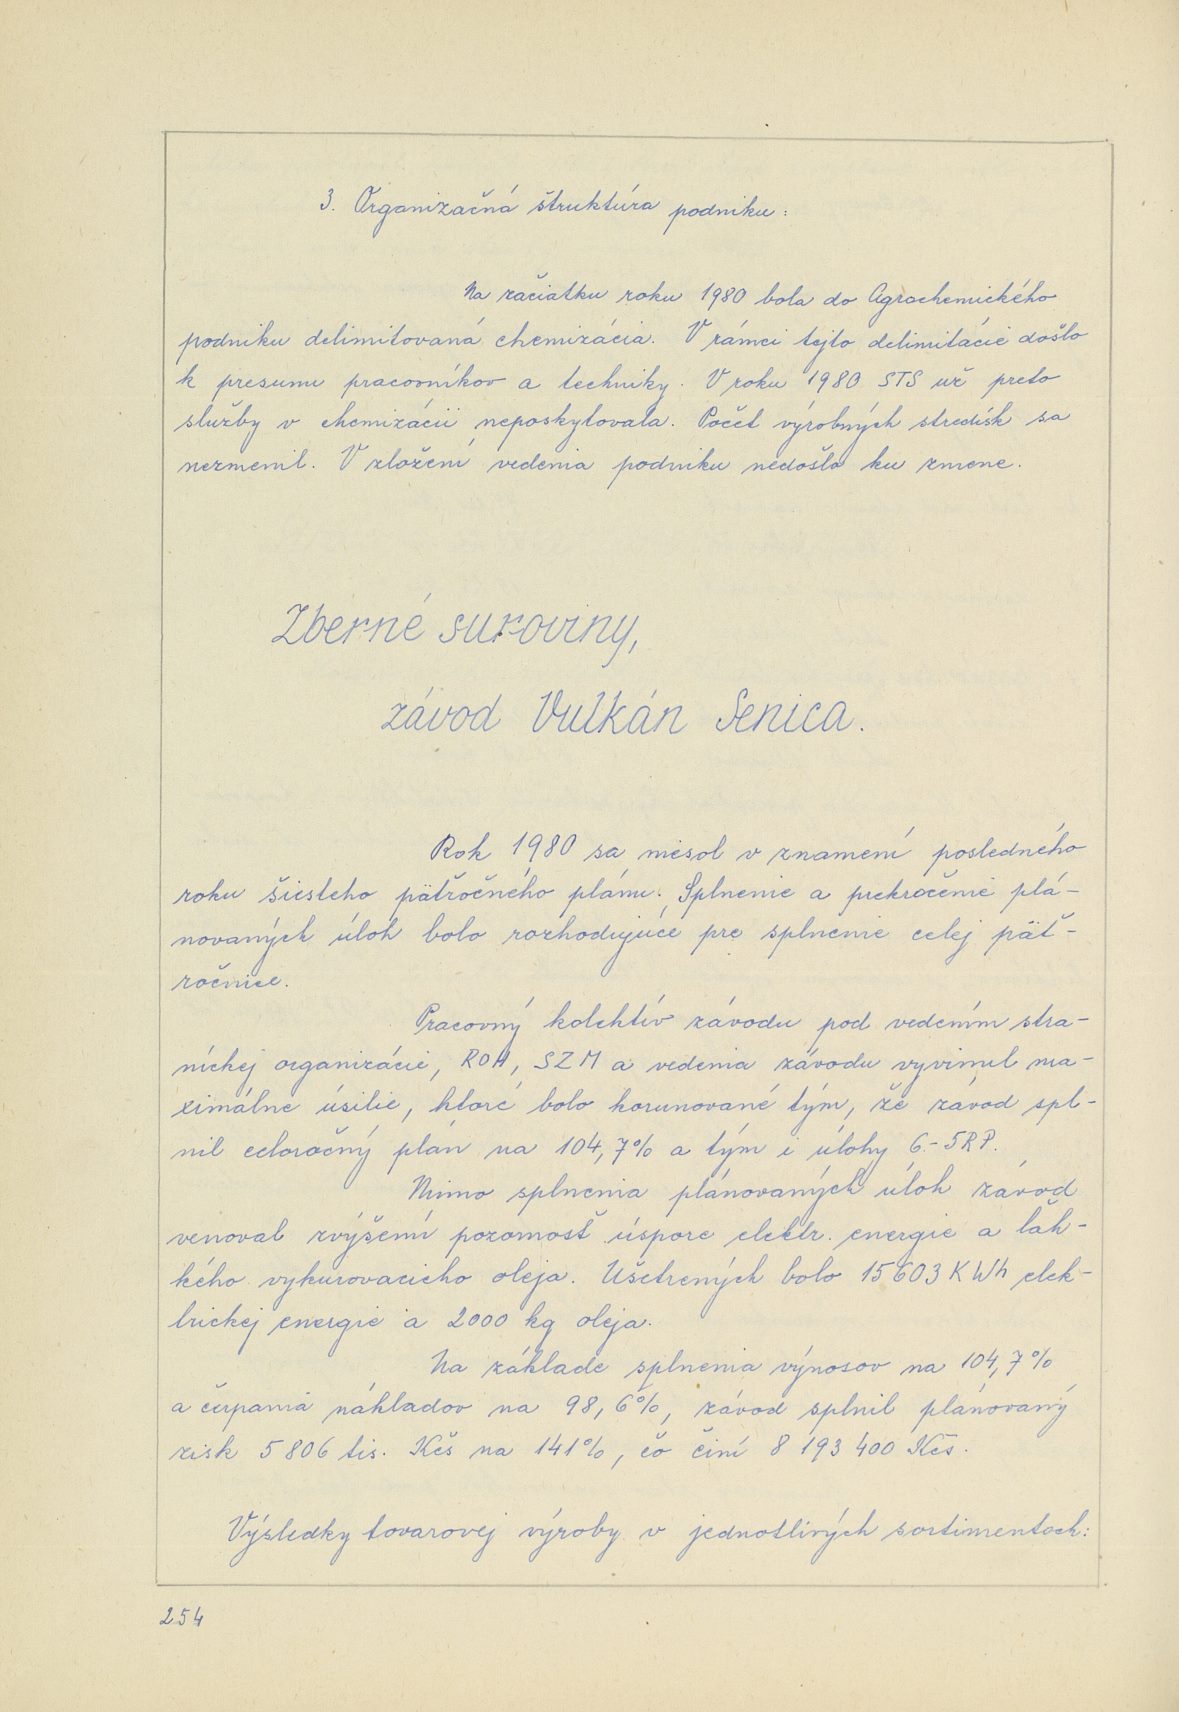 3. Organizačná štruktúra podniku:
Na začiatku roku 1980 bola do Agrochemického
podniku delimitovaná chemizácia. V rámci tejto delimitácie došlo
k presunu pracovníkov a techniky. V roku 1980 STS už preto
služby v chemizácii neposkytovala. Počet výrobných stredísk sa
nezmenil. V zložení vedenia podniku nedošlo ku zmene.
Zberné suroviny,
závod Vulkán Senica.
Rok 1980 sa niesol v znamení posledného
roku šiesteho päťročného plánu. Splnenie a prekročenie plá-
novaných úloh bolo rozhodujúce pre splnenie celej päť-
ročnice.
Pracovný kolektív závodu pod vedením stra-
níckej organizácie, ROH, SZM a vedenia závodu vyvinul ma-
ximálne úsilie, ktoré bolo korunované tým, že závod spl-
nil celoročný plán na 104,7% a tým i úlohy 6.-5RP.
Mimo splnenia plánovaných úloh závod
venoval zvýšenú pozornosť úspore elektr. energie a ľah-
kého vykurovacieho oleja. Ušetrených bolo 15603 KWh elek-
trickej energie a 2000 kg oleja.
Na základe splnenia výnosov na 104,7%
a čerpania nákladov na 98,6%, závod splnil plánovaný
zisk 5 806 tis. Kčs na 141%, čo činí 8 193 400 Kčs.
Výsledky tovarovej výroby v jednotlivých sortimentoch:
254